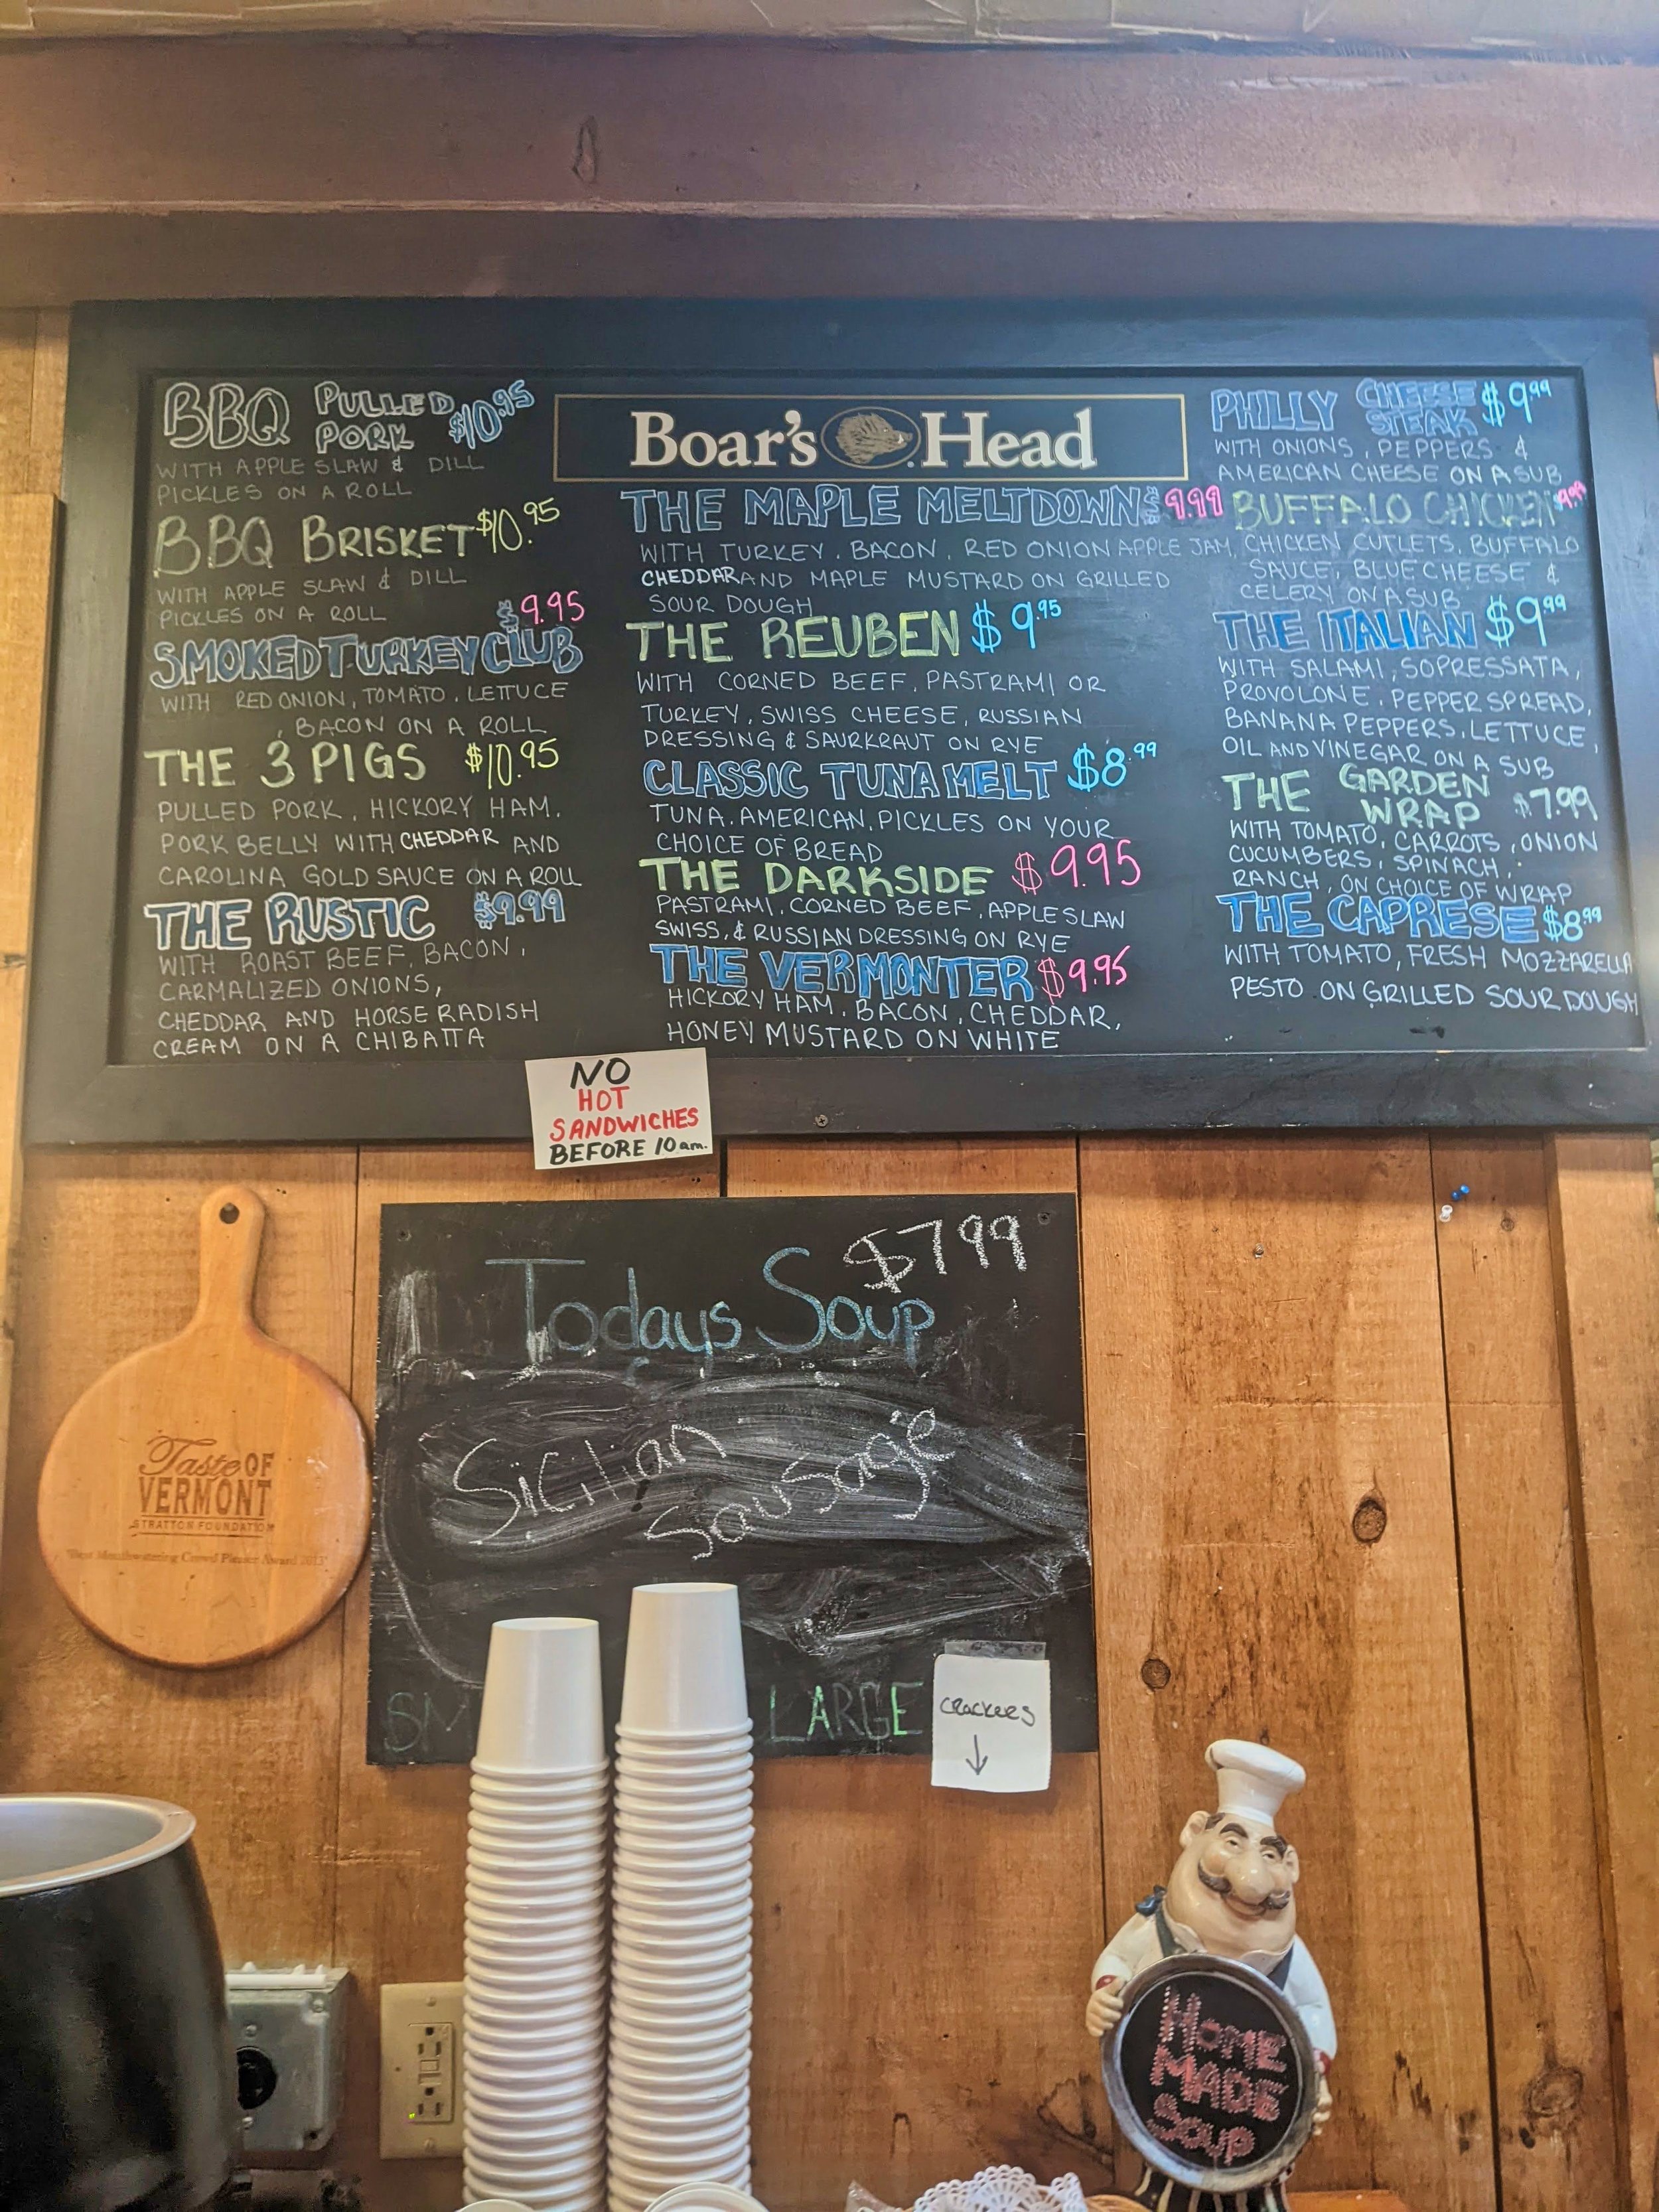 BBQ PULLED PORK $10.95
WITH APPLE SLAW & DILL
PICKLES ON A ROLL
BBQ BRISKET $10.95
WITH APPLE SLAW & DILL
PICKLES ON A ROLL
$9.95
SMOKED TURKEY CLUB
WITH RED ONION, TOMATO, LETTUCE
, BACON ON A ROLL
THE 3 PIGS $10.95
PULLED PORK, HICKORY HAM,
PORK BELLY WITH CHEDDAR AND
CAROLINA GOLD SAUCE ON A ROLL
THE RUSTIC $9.99
WITH ROAST BEEF, BACON,
CARMALIZED ONIONS,
CHEDDAR AND HORSE RADISH
CREAM ON A CHIBATTA
Boar's Head
THE MAPLE MELTDOWN $9.99
WITH TURKEY, BACON, RED ONION APPLE JAM,
CHEDDAR AND MAPLE MUSTARD ON GRILLED
SOUR DOUGH
THE REUBEN $9.95
WITH CORNED BEEF, PASTRAMI OR
TURKEY, SWISS CHEESE, RUSSIAN
DRESSING & SAURKRAUT ON RYE
CLASSIC TUNA MELT $8.99
TUNA, AMERICAN, PICKLES ON YOUR
CHOICE OF BREAD
THE DARKSIDE $9.95
PASTRAMI, CORNED BEEF, APPLE SLAW
SWISS, & RUSSIAN DRESSING ON RYE
THE VERMONTER $9.95
HICKORY HAM, BACON, CHEDDAR,
HONEY MUSTARD ON WHITE
PHILLY CHEESE STEAK $9.99
WITH ONIONS, PEPPERS &
AMERICAN CHEESE ON A SUB
BUFFALO CHICKEN 9.99
CHICKEN CUTLETS, BUFFALO
SAUCE, BLUE CHEESE &
CELERY ON A SUB
THE ITALIAN $9.99
WITH SALAMI, SOPRESSATA,
PROVOLONE, PEPPER SPREAD,
BANANA PEPPERS, LETTUCE,
OIL AND VINEGAR ON A SUB
THE GARDEN WRAP $7.99
WITH TOMATO, CARROTS, ONION
CUCUMBERS, SPINACH,
RANCH, ON CHOICE OF WRAP
THE CAPRESE $8.99
WITH TOMATO, FRESH MOZZARELLA
PESTO ON GRILLED SOUR DOUGH
NO
HOT
SANDWICHES
BEFORE 10 am.
$799
Todays Soup
Sicilian
Sausage
SM
LARGE
Crackers
Taste OF
VERMONT
STRATTON FOUNDATION
"Best Mouthwatering Crowd Pleaser Award 2013"
HOME
MADE
SOUP